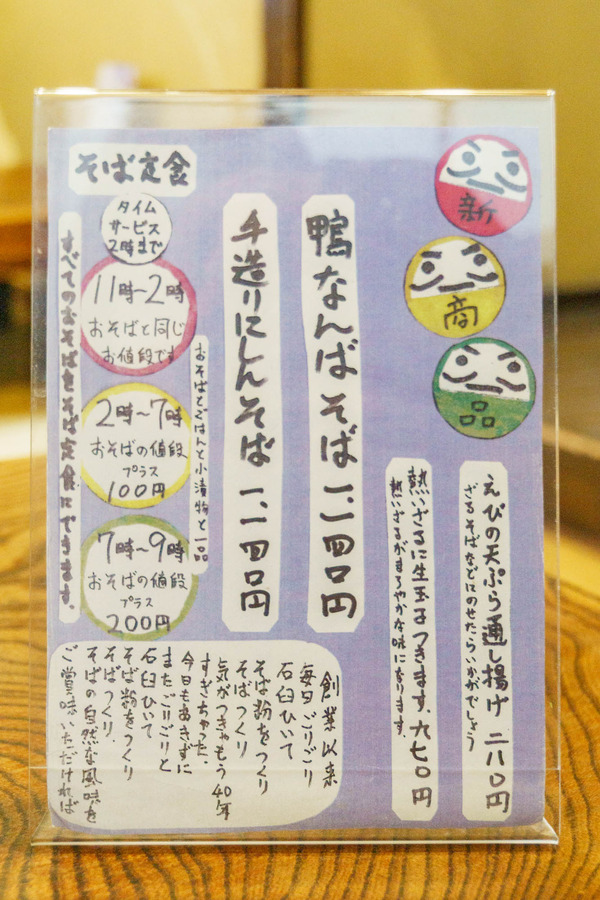 新
商
品
えびの天ぷら通し揚げ 二八〇円
ざるそばなどにのせたらいかがでしょう
熱いざるに生玉子つきます、六七〇円
熱いざるがまろやかな味になります。
鴨なんばそば 一、一四〇円
手造りにしんそば 一、一四〇円
そば定食
タイム
サービス
2時まで
11時~2時
おそばと同じ
お値段です
2時~7時
おそばの値段
プラス
100円
7時~9時
おそばの値段
プラス
200円
おそばとごはんと小漬物と一品
すべてのおそばをそば定食にできます。
創業以来
毎日ごりごり
石臼ひいて
そば粉をつくり
そばつくり
気がつきゃもう40年
すぎちゃった、
今日もあきずに
またごりごりと
石臼ひいて
そば粉をつくり
そばつくり、
そばの自然な風味を
ご賞味いただければ